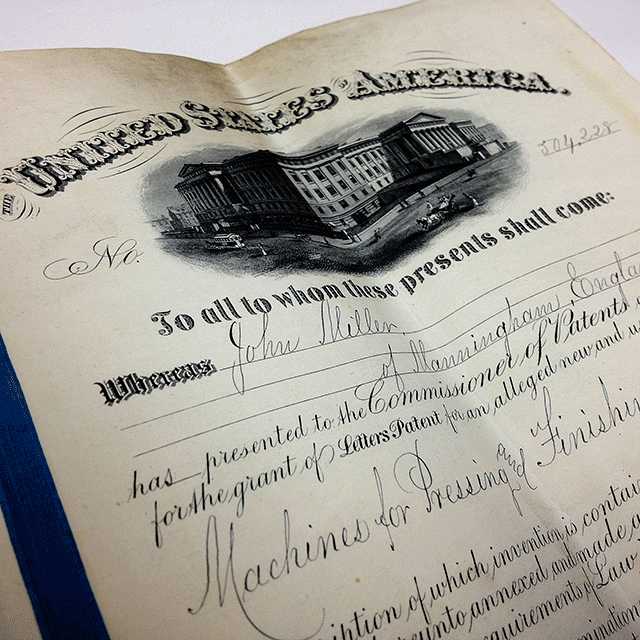 THE UNITED STATES OF AMERICA,
504,228
No.
To all to whom these presents shall come:
Whereas John Miller
of Manningham, England
has presented to the Commissioner of Patents
for the grant of Letters Patent for an alleged new and
Machines for Pressing and
description of which invention is
hereunto annexed and made
requirements of Law